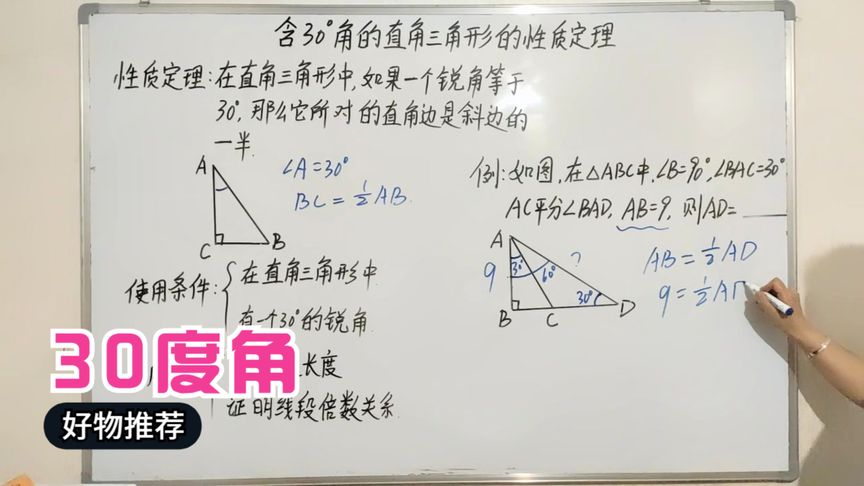 含30°角的直角三角形的性质定理
性质定理:在直角三角形中,如果一个锐角等于
30°,那么它所对的直角边是斜边的
一半.
A
C
B
∠A=30°
BC=½AB.
使用条件:
在直角三角形中
有一个30°的锐角
长度
证明线段倍数关系.
例:如图,在△ABC中,∠B=90°,∠BAC=30°
AC平分∠BAD, AB=9, 则AD=____
A
9
30°
60°
?
30°
B
C
D
AB=½AD
9=½AD
30度角
好物推荐